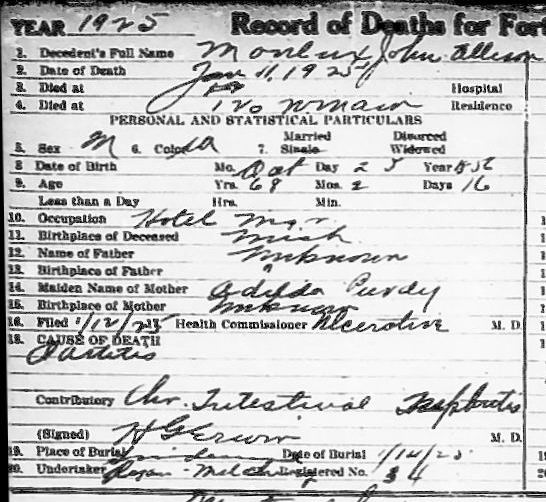 YEAR 1925 Record of Deaths for Fort
1. Decedent's Full Name Monteux John Allison
2. Date of Death Jan 11, 1925
3. Died at Hospital
4. Died at 120 W Main Residence
PERSONAL AND STATISTICAL PARTICULARS
Married Divorced
5. Sex M 6. Color 7. Single Widowed
8 Date of Birth Mo. Oct Day 25 Year 1856
9. Age Yrs. 68 Mos. 2 Days 16
Less than a Day Hrs. Min.
10. Occupation Hotel Mgr.
11. Birthplace of Deceased Mich
12. Name of Father Unknown
13. Birthplace of Father "
14. Maiden Name of Mother Adilda Purdy
15. Birthplace of Mother Unknown
16. Filed 1/12/25 Health Commissioner M. D.
18. CAUSE OF DEATH
Contributory Chr. Intestinal Nephritis
(Signed) H G Erwin M. D.
19. Place of Burial Lindenwood Date of Burial 1/14/25
20. Undertaker Registered No. 34